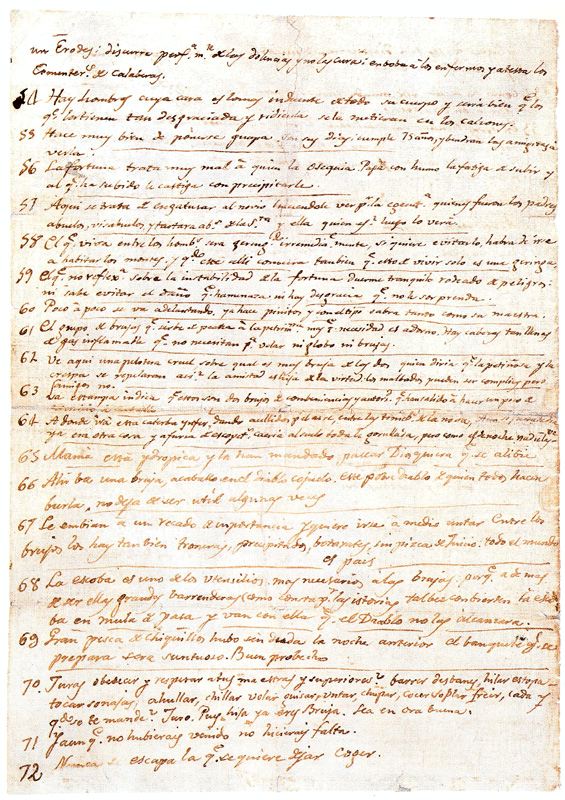 un Erodes: discurre perf.ᵗᵃ m.ᵗᵉ de las dolencias y no las cura: emboba á los enfermos y atesta los
Comenter.ˢ de calaberas.
54 Hay hombres cuya cara es lo mas indecente de todo su cuerpo y seria bien q.ᵉ los
q.ᵉ la tienen tan desgraciada y ridicula se la metieran en los calzones.
55 Hace muy bien de ponerse guapa. son sus dias; cumple 75 años, y bendran las amiguitas
verla.
56 La fortuna trata muy mal á quien la obsequia. Paga con humo la fatiga de subir y
al q.ᵉ ha subido le castiga con precipitarle.
57 Aqui se trata de engatusar al novio haciendole ver p.ʳ la quienes fueron los padres
abuelos, visabuelos, y tartarab.ˢ de la S.ʳᵗᵃ y ella quien es? luego lo vera.
58 El q.ᵉ viva entre los homb.ˢ sera irremediam.ᵗᵉ, si quiere evitarlo, habra de irse
a habitar los montes, y q.ᵈᵒ este alli conocera tambien q.ᵉ esto de vivir solo es una geringa.
59 El q.ᵉ no reflex.ᵃ sobre la instabilidad de la fortuna duerme tranquilo rodeado de peligros:
ni sabe evitar el daño q.ᵉ hamenaza ni hay desgracia q.ᵉ no le sorprenda.
60 Poco á poco se va adelantando, ya hace pinitos y con el tpo sabra tanto como su maestra.
61 El grupo de brujas q.ᵉ sirbe de peana á la petim.ʳᵃ mas q.ᵉ necesidad es adorno. Hay cabezas tan llenas
de gas inflamable q.ᵉ no necesitan p.ᵃ volar ni globo ni brujas.
62 Ve aqui una pelotera cruel sobre qual es mas bruja de las dos quien diria q.ᵉ la petiñosa y la
crespa se repelaran asi? la amistad es hija de la virtud los malbados pueden ser complices pero
amigos no.
63 La estampa indica q.ᵉ estos son dos brujos de combeniencia y autori.ᵈ q.ᵉ han salido á hacer un poco de
64 A donde irá esta caterba dando aullidos p.ʳ el aire, entre las de la noche,
ya en otra cosa y a furia de escopet.ˢ caeria al suelo toda la gorullada, pero como es de noche nadie las ve
65 Mama está ydropica y la han mandado pasear Dios quiera q.ᵉ se alibie
66 Ahi ba una bruja, acaballo en el diablo cojuelo. este pobre diablo de quien todos hacen
burla, no deja de ser util algunas veces
67 Le embian á un recado de importancia y quiere irse á medio untar Entre los
brujos los hay tambien troneras, precipitados, botarates, sin pizca de juicio: todo el mundo
es pais
68 La escoba es uno de los utensilios mas necesarios á las brujas: porq.ᵉ a de mas
de ser ellas grandes barrenderas como las istorias talbez conbierten la esco
ba en mula de paso y van con ella q.ᵉ el Diablo no las alcanzara.
69 Gran pesca de chiquillos hubo sin duda la noche anterior el banquete q.ᵉ se
prepara sera suntuoso. Buen probecho
70. Juras obedecer y respetar a tus maestras y superiores? barrer desbanes, hilar estopa
tocar sonajas; ahullar, chillar volar guisar, untar, chupar, cocer soplar freir, cada y
q.ᵈᵒ se te mande? Juro. Pues hija ya eres Bruja. Sea en ora buena.
71 Y aunq.ᵉ no hubieras venido no hicieras falta.
72 Nunca se escapa la q.ᵉ se quiere dejar Coger.